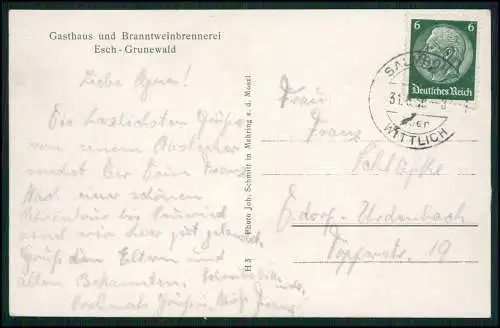 Gasthaus und Branntweinbrennerei
Esch-Grunewald
Liebe Agnes!
Die herzlichsten Grüße
von einem Abstecher
sendet Dir Dein Franz.
Nach einer schönen
Rheintour bis Neuwied
sind wir hier gut gelandet.
Grüße den Eltern und
allen Bekannten.
Nochmals Grüße u. Küsse Franz
H 3 Photo Joh. Schmitt in Mehring a. d. Mosel
6 6
Deutsches Reich
SALMROHR
31.
WITTLICH
Frau
Franz
Ddorf-Urdenbach
Töpferstr. 19